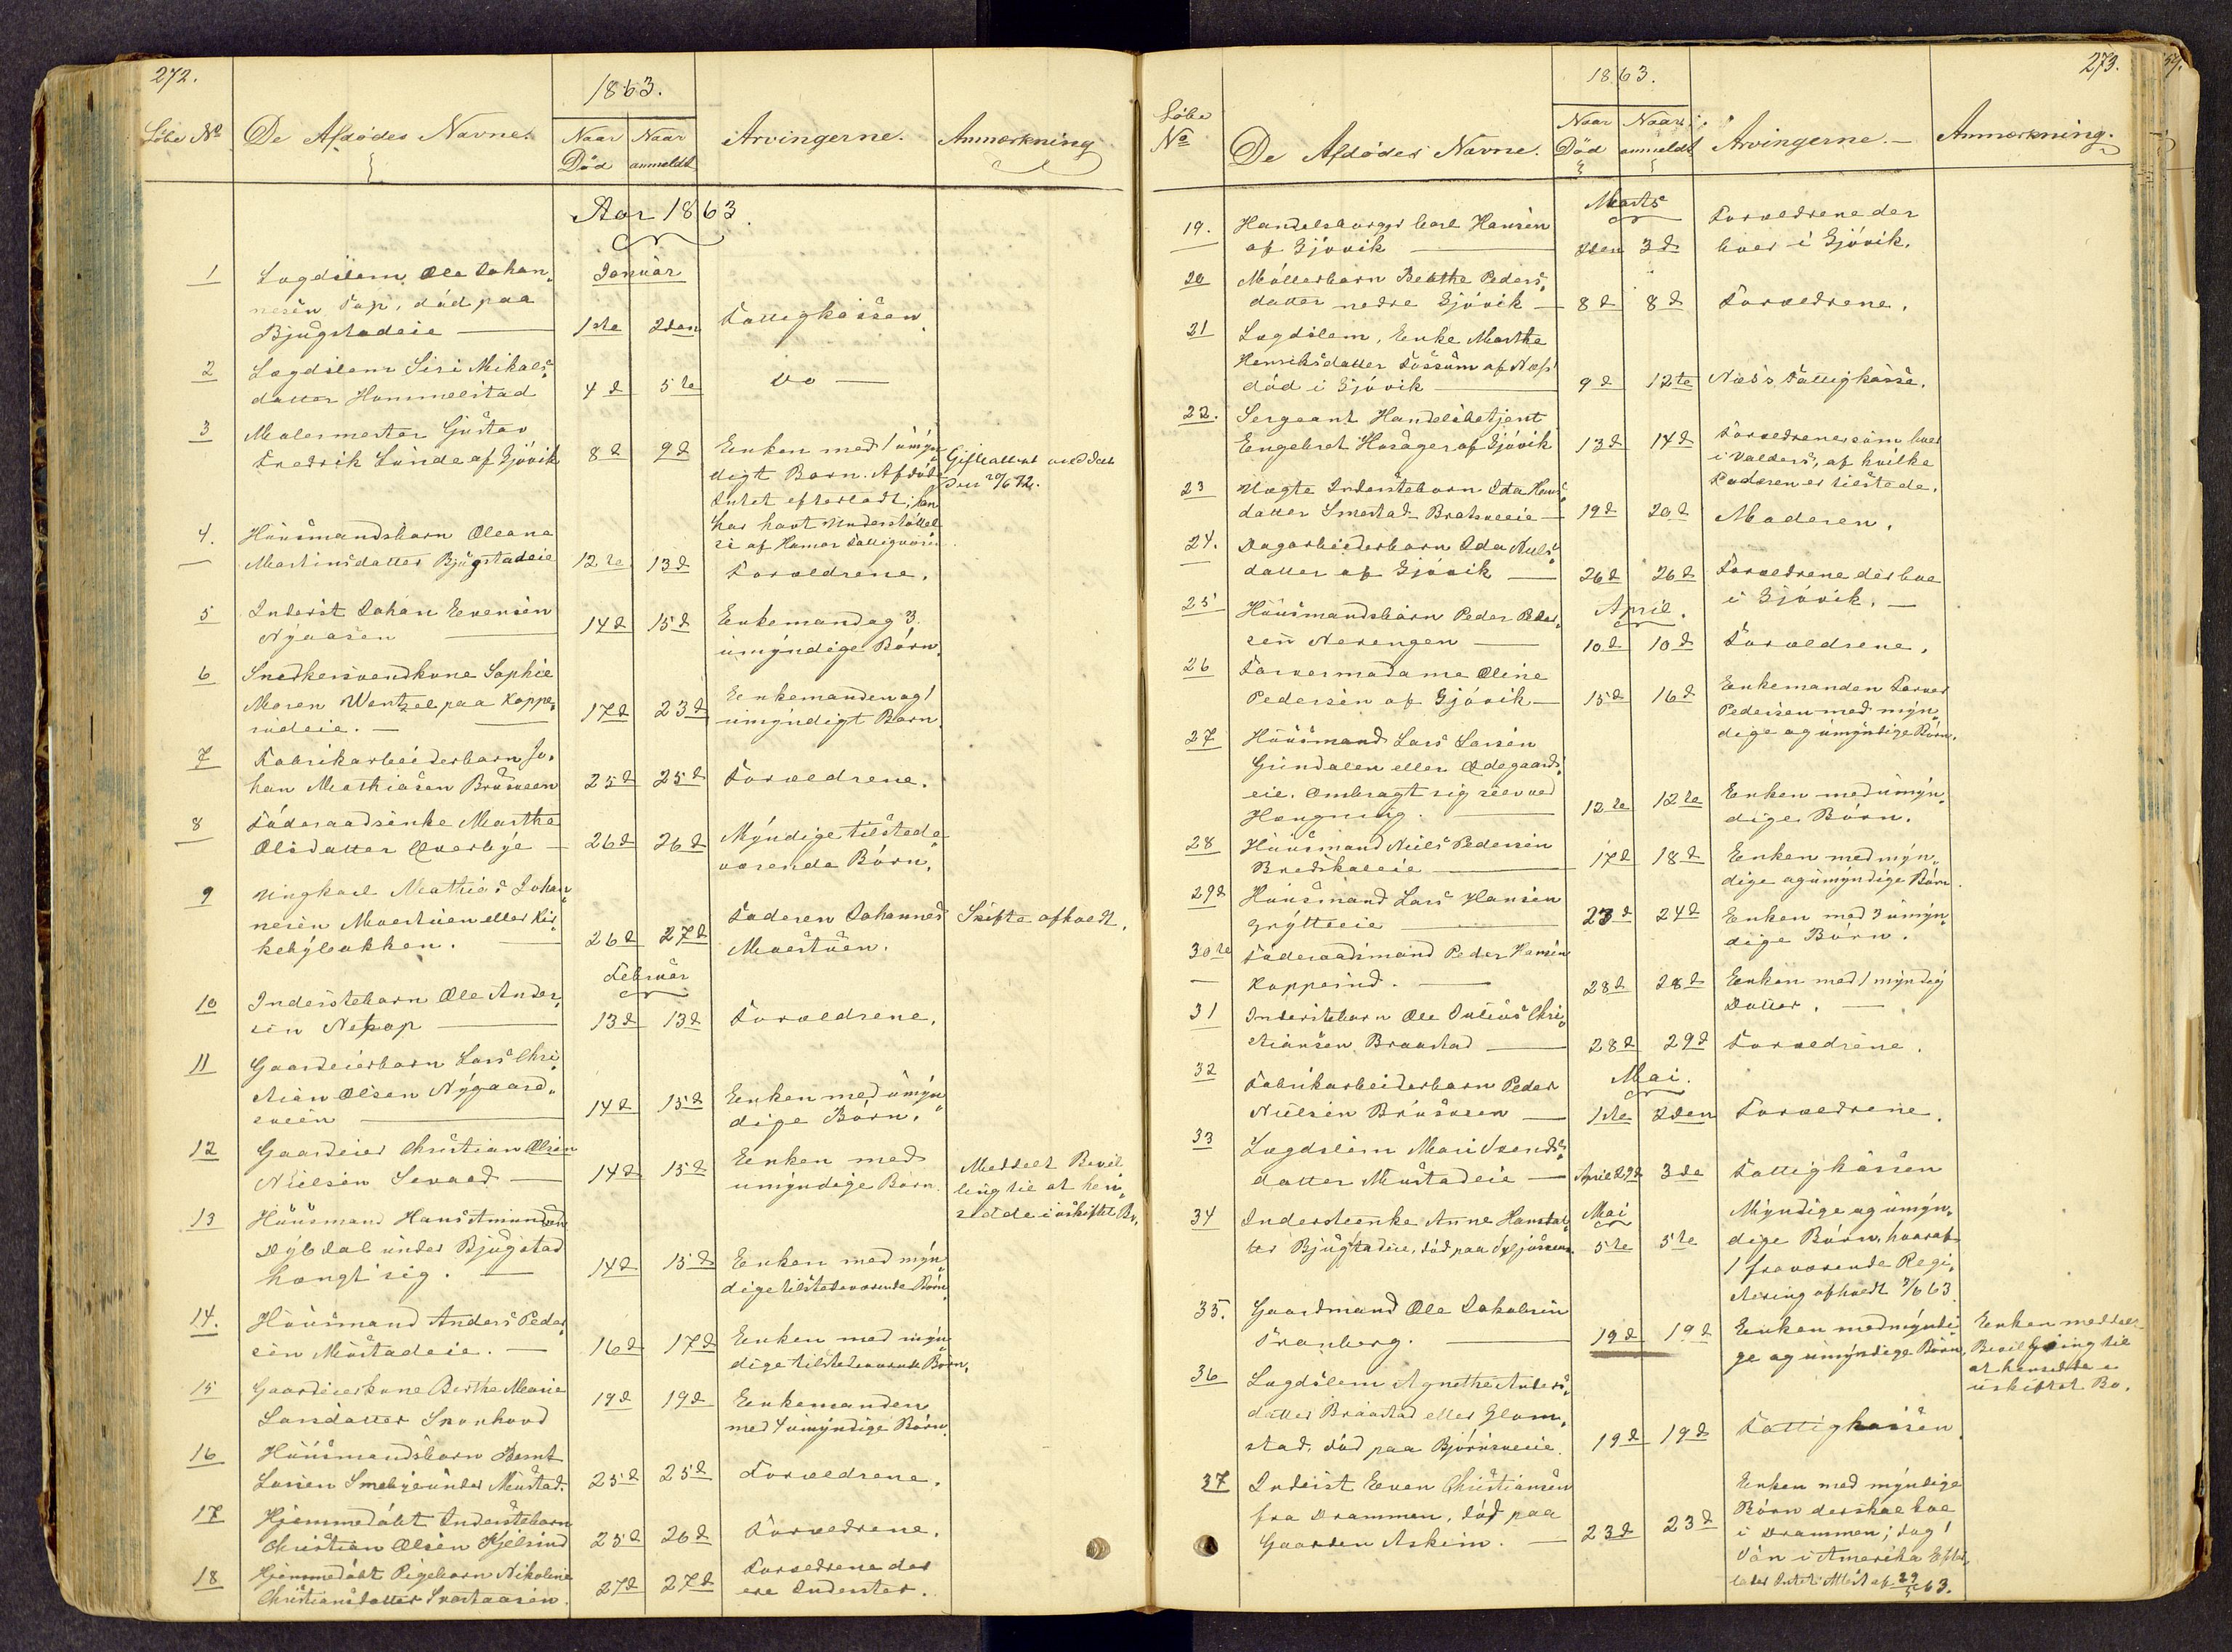 272.
1863.
Løbe No
De Afdødes Navne.
Naar Død
Naar anmeldt
Arvingerne.
Anmærkning
Aar 1863.
Januar
1
Lægdslem Ole Johan„
nesen Top, död paa
Bjugstadeie
1ste
2den
Fattigkassen
2
Lægdslem Siri Mikaels„
datter Hammelstad
4d
5te
do
3
Malermester Gustav
Fredrik Lunde af Gjövik
8d
9d
Enken med 1 umyn„
digt Barn. Afdöde
Intet efterladt; han
har havt Understöttel
se af Hamar Fattigvæsen
Gifteattest udstedt
den 20/6 72.
4.
Huusmandsbarn Oleana
Martinsdatter Bjugstadeie
12te
13d
Forældrene.
5
Inderst Johan Evensen
Nyaasen
14d
15d
Enkemand og 3
umyndige Börn.
6
Snedkersvendkone Sophie
Maren Wentzel paa Koppe„
rudeie.
17d
23d
Enkemanden og 1
umyndigt Barn.
7
Fabrikarbeiderbarn Jo„
han Mathiasen Brusveen
25d
25d
Forældrene.
8
Föderaadsenke Marthe
Olsdatter Överbye
26d
26d
Myndige tilstede„
værende Börn.
9
Ungkarl Mathias Johan„
nesen Moestuen eller Kir„
kebybakken.
26d
27d
Faderen Johannes
Moestuen.
Skifte afholdt.
Februar
10
Inderstebarn Ole Ander„
sen
13d
13d
Forældrene.
11
Gaardeierbarn Lars Chri„
stian Olsen Nygaard„
sveen
14d
15d
Enken med umyn„
dige Börn.
12
Gaardeier Christian Olsen
Nielsen
14d
15d
Enken med
umyndige Börn.
Meddelt Bevil
ling til at hen„
sidde i uskiftet Bo.
13
Huusmand Hans Amundsen
Dybdal under Bjugstad
hængt sig.
14d
15d
Enken med myn„
dige tilstedeværende Börn.
14.
Huusmand Anders Peder„
sen Mustadeie.
16d
17d
Enken med myn„
dige tilstedeværende Börn.
15
Gaardeierkone Berthe Marie
Larsdatter
19d
19d
Enkemanden
med 4 umyndige Börn.
16
Huusmandsbarn Bernt
Larsen Smebye under Mustad.
25d
25d
Forældrene.
17
Hjemmedöbt Inderstebarn
Christian Olsen Hjelsind
25d
26d
Forældrene.
18
Hjemmedöbt Pigebarn Nikoline
Christiansdatter Svartaasen.
27d
27d
Forældrene der
ere Inderster.
273.
1863.
Løbe No
De Afdødes Navne.
Naar Död
Naar anmeldt
Arvingerne.
Anmærkning.
Marts
19.
Handelsborger Carl Hansen
af Gjövik
2den
3d
Forældrene der
boer i Gjövik.
20
Möllerbarn Beathe Peders„
datter nedre Gjövik
8d
8d
Forældrene.
21
Lægdslem, Enke Marthe
Henriksdatter Fossum af Næs
död i Gjövik
9d
12te
Næs's Fattigkasse.
22.
Sergeant Handelsbetjent
Engebret Hovsager af Gjövik
13d
14d
Forældrene som boer
i Valders, af hvilke
Faderen er tilstede.
23
Uægte Inderstebarn Ida Hans„
datter Smestad Bratsveeie
19d
20d
Moderen.
24.
Dagarbeiderbarn Ida Niels„
datter af Gjövik
26d
26d
Forældrene der boe
i Gjövik.
April.
25
Huusmandsbarn Peder Peder„
sen Nerengen
10d
10d
Forældrene.
26
Farvermadame Oline
Pedersen af Gjövik
15d
16d
Enkemanden Farver
Pedersen med myn„
dige og umyndige Börn.
27
Huusmand Lars Larsen
Grindalen eller Ödegaards„
eie. Ombragt sig selv ved
Hængning.
12te
12te
Enken med umyn„
dige Börn.
28
Huusmand Niels Pedersen
Bredskaleie
17d
18d
Enken med myn„
dige og umyndige Börn.
29d
Huusmand Lars Hansen
Grytteeie
23d
24d
Enken med 3 umyn„
dige Börn.
30te
Föderaadsmand Peder Hansen
Kopperud.
28d
28d
Enken med 1 myndig
Datter.
31
Inderstebarn Ole Julius Chri„
stiansen Braastad
28d
29d
Forældrene.
Mai.
32
Fabrikarbeiderbarn Peder
Nielsen Brusveen
1ste
2den
Forældrene.
33
Lægdslem Mari Svends„
datter Mustadeie
April 29d
3de
Fattigkassen
34
Inderstenke Anne Hansdat„
ter Bjugstadeie, död paa
Mai
5te
5te
Myndige og umyn„
dige Börn, hvoraf
1 fraværende Regi„
strering afholdt 3/6 63
35.
Gaardmand Ole Jakobsen
Tranberg.
19d
19d
Enken med myndi„
ge og umyndige Börn.
Enken meddelt
Bevilgning til
at hensidde i
uskiftet Bo.
36
Lægdslem Agnethe Anders„
datter Braastad eller Glæm„
stad, död paa Björnsveeie.
19d
19d
Fattigkassen
37
Inderst Even Christiansen
fra Drammen, död paa
Gaarden Askim.
23d
23d
Enken med myndige
Börn der skal boe
i Drammen; dog 1
Sön i Amerika Efter„
lader Intet. Attest af 29/5 63.